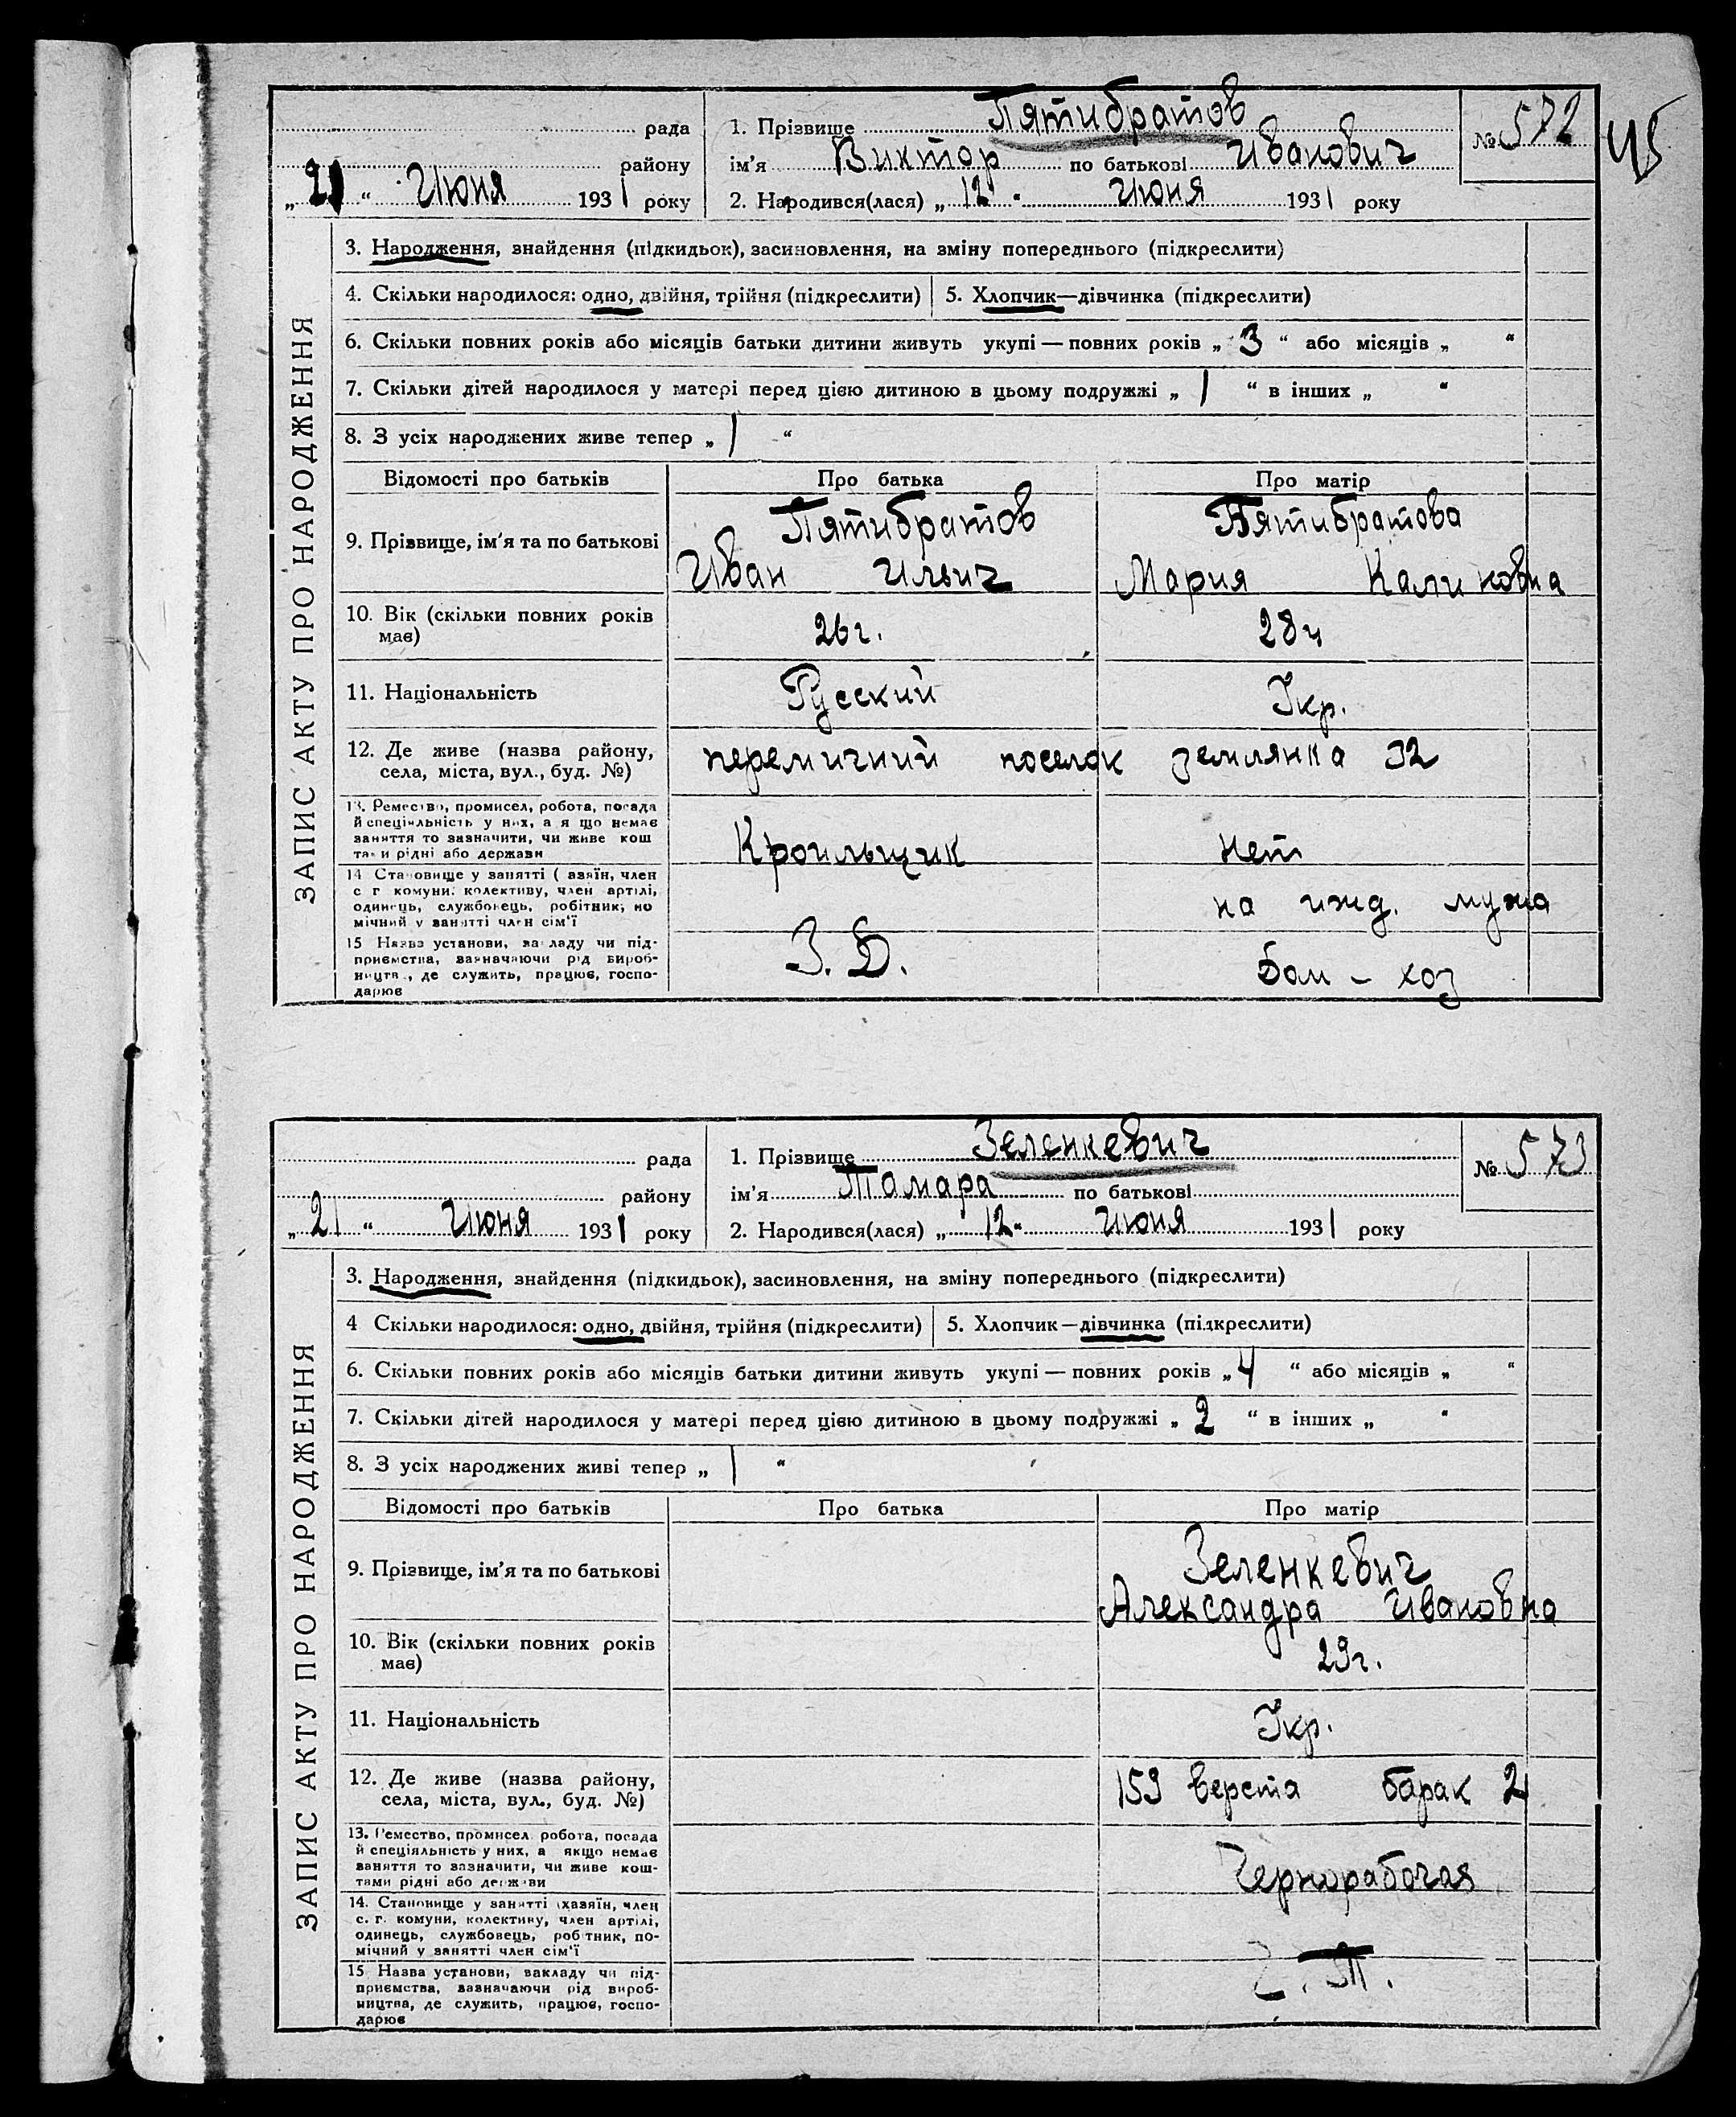 45
рада
району
„ 21 “ Июня 1931 року
1. Прізвище Пятибратов
ім'я Виктор по батькові Иванович
2. Народився(лася) „ 12 “ Июня 1931 року
№ 572
ЗАПИС АКТУ ПРО НАРОДЖЕННЯ
3. Народження, знайдення (підкидьок), засиновлення, на зміну попереднього (підкреслити)
4. Скільки народилося: одно, двійня, трійня (підкреслити)
5. Хлопчик—дівчинка (підкреслити)
6. Скільки повних років або місяців батьки дитини живуть укупі — повних років „ 3 “ або місяців „ “
7. Скільки дітей народилося у матері перед цією дитиною в цьому подружжі „ 1 “ в інших „ “
8. З усіх народжених живе тепер „ 1 “
Відомості про батьків
Про батька
Про матір
9. Прізвище, ім'я та по батькові
Пятибратов
Иван Ильич
Пятибратова
Мария Калиновна
10. Вік (скільки повних років
має)
26 г.
28
11. Національність
Русский
Укр.
12. Де живе (назва району,
села, міста, вул., буд. №)
перемичний поселок землянка 32
13. Ремество, промисел, робота, посада
й спеціяльність у них, а я що немає
заняття то зазначити, чи живе кош
та и рідні або держави
Кроильщик
нет
14 Становище у занятті ( азяїн, член
с г комуни, колективу, член артілі,
одинець, службовець, робітник, по
мічний у занятті член сім'ї
на ижд. мужа
15 Назва установи, закладу чи під-
приємства, зазначаючи рід вироб-
ництв., де служить, працює, госпо-
дарює
З. Д.
хоз
рада
району
„ 21 “ Июня 1931 року
1. Прізвище Зеленкевич
ім'я Тамара по батькові
2. Народився(лася) „ 12 “ Июня 1931 року
№ 573
ЗАПИС АКТУ ПРО НАРОДЖЕННЯ
3. Народження, знайдення (підкидьок), засиновлення, на зміну попереднього (підкреслити)
4 Скільки народилося: одно, двійня, трійня (підкреслити)
5. Хлопчик—дівчинка (підкреслити)
6. Скільки повних років або місяців батьки дитини живуть укупі — повних років „ 4 “ або місяців „ “
7. Скільки дітей народилося у матері перед цією дитиною в цьому подружжі „ 2 “ в інших „ “
8. З усіх народжених живі тепер „ 1 “
Відомості про батьків
Про батька
Про матір
9. Прізвище, ім'я та по батькові
Зеленкевич
Александра Ивановна
10. Вік (скільки повних років
має)
29 г.
11. Національність
Укр.
12. Де живе (назва району,
села, міста, вул., буд. №)
159 верста барак 2
13. Ремество, промисел робота, посада
й спеціяльність у них, а якщо немає
заняття то зазначити, чи живе кош-
тами рідні або держави
Чернорабочая
14. Становище у занятті (хазяїн, член
с. г. комуни, колективу, член артілі,
одинець, службовець, роб тник, по-
мічний у занятті член сім'ї
15 Назва установи, закладу чи під-
приємства, зазначаючи рід вироб-
ництва, де служить, працює, госпо-
дарює